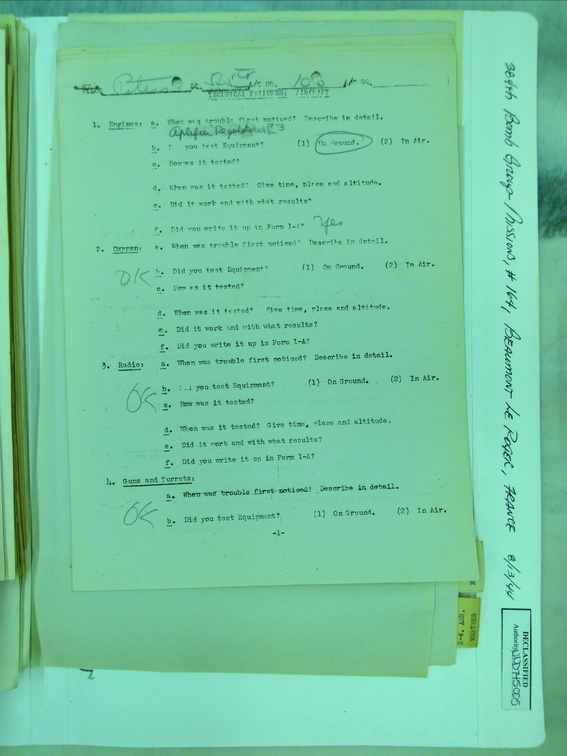 Peters
TECHNICAL FAILURES: AIRCRAFT
1. Engines: a. When was trouble first noticed? Describe in detail.
b. you test Equipment? (1) On Ground. (2) In Air.
c. How was it tested?
d. When was it tested? Give time, place and altitude.
e. Did it work and with what results?
f. Did you write it up in Form 1-A? Yes
2. Oxygen: a. When was trouble first noticed? Describe in detail.
OK b. Did you test Equipment? (1) On Ground. (2) In Air.
c. How as it tested?
d. When was it tested? Give time, place and altitude.
e. Did it work and with what results?
f. Did you write it up in Form 1-A?
3. Radio: a. When was trouble first noticed? Describe in detail.
OK b. you test Equipment? (1) On Ground. (2) In Air.
c. How was it tested?
d. When was it tested? Give time, place and altitude.
e. Did it work and with what results?
f. Did you write it up in Form 1-A?
4. Guns and Turrets:
a. When was trouble first noticed? Describe in detail.
OK b. Did you test Equipment? (1) On Ground. (2) In Air.
-1-
384th Bomb Group Missions, # 164, BEAUMONT LE ROGER, FRANCE 8/13/44
DECLASSIFIED
Authority NND745005
WEATHER